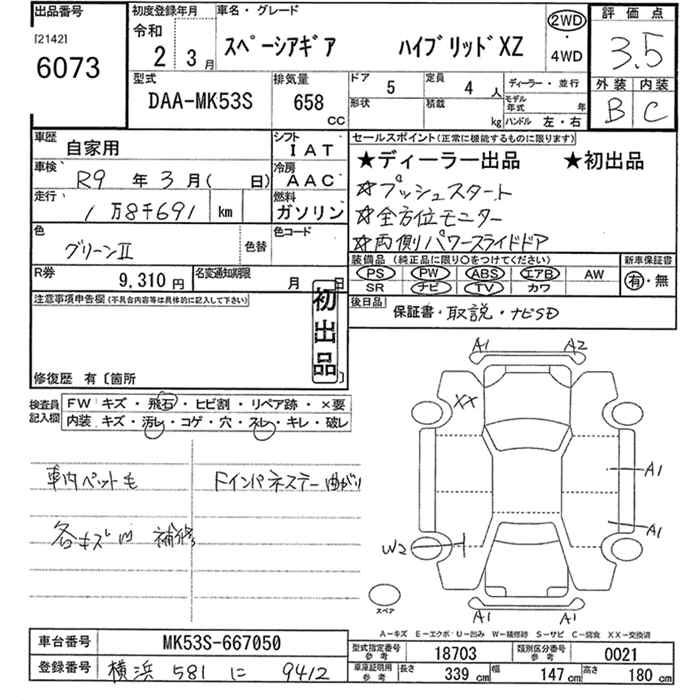 出品番号 初度登録年月 車名・グレード 2WD 評価点
[2142] 令和 ・
6073 2 3月 スペーシアギア ハイブリッドXZ 4WD 3.5
型式 排気量 ドア 5 定員 4人 ディーラー・並行 外装 内装
DAA-MK53S 658 CC 形状 積載 kg モデル年式 年 ハンドル 左・右 B C
車歴 自家用 シフト IAT セールスポイント(正常に機能するものに限ります)
車検 R9年3月(日) 冷房 AAC ★ディーラー出品 ★初出品
走行 1万8千691 km 燃料 ガソリン ☆プッシュスタート
☆全方位モニター
色 グリーンⅡ 色替 色コード ☆両側パワースライドドア
装備品(純正品に限り○をつけてください) 新車保証書
R券 9,310円 名変通知期限 月 日 PS PW ABS エアB AW 有・無
SR ナビ TV カワ
注意事項申告欄(不具合内容等は具体的に記入して下さい) 初出品 後日品 保証書・取説・ナビSD
修復歴 有〔箇所 〕
検査員記入欄 FW キズ・飛石・ヒビ割・リペア跡・×要
内装 キズ・汚レ・コゲ・穴・スレ・キレ・破レ
A1 A2
XX
車内ペット毛 Fインパネステー曲がり A1
各キズ凹 補修 A1
W2
スペア A1 A1
A-キズ E-エクボ U-凹み W-補修跡 S-サビ C-腐食 XX-交換済
車台番号 MK53S-667050 型式指定番号 参考 18703 類別区分番号 参考 0021
登録番号 横浜 581 に 9412 車庫証明用 参考 長さ 339cm 幅 147cm 高さ 180cm